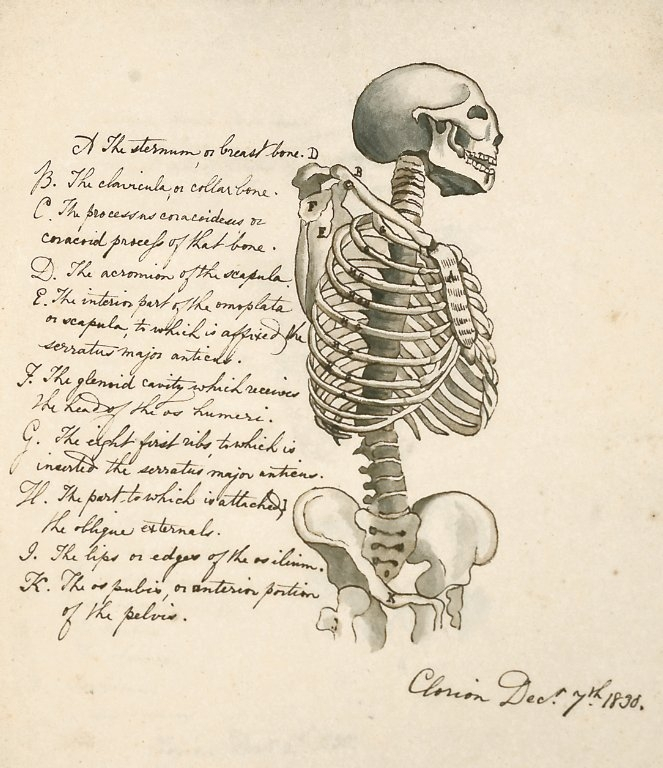 A The sternum, or breast bone.
B. The clavicula, or collar bone.
C. The processus coracoideus or
coracoid process of that bone.
D. The acromion of the scapula.
E. The interior part of the omoplata
or scapula, to which is affixed the
serratus major anticus.
F. The glenoid cavity which receives
the head of the os humeri.
G. The eight first ribs to which is
inserted the serratus major anticus.
H. The part to which is attached
the oblique externals.
I. The lips or edges of the os ilium.
K. The os pubis, or anterior portion
of the pelvis.
D
B
F
E
G
A
I
K
Dec.r 7th